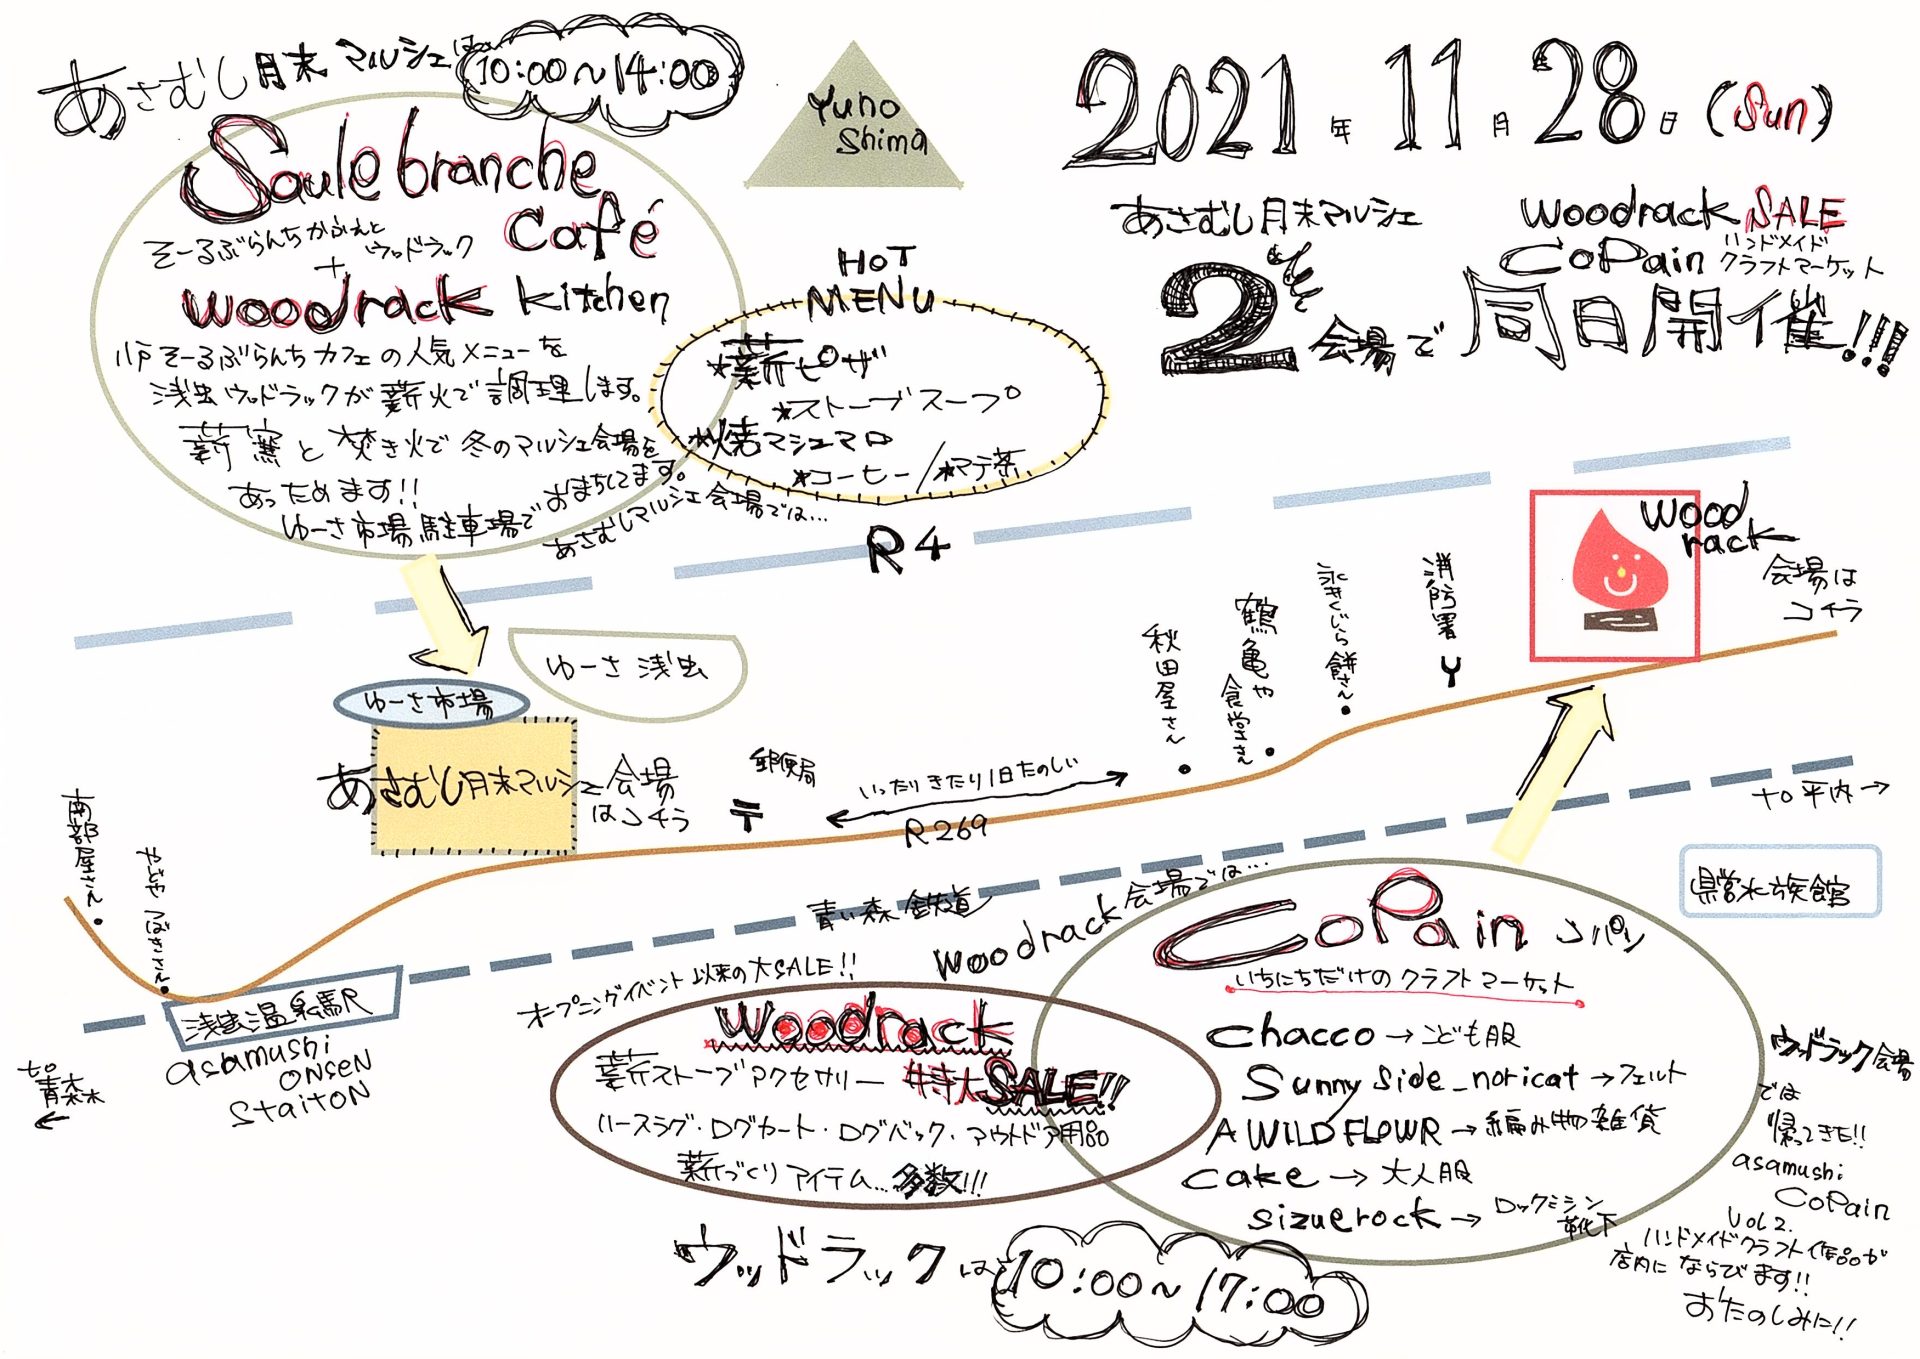 あさむし月末マルシェは
10:00〜14:00
Saule branche
Café
そーるぶらんちかふぇと
ウッドラック
+
woodrack kitchen
八戸そーるぶらんちカフェの人気メニューを
浅虫ウッドラックが薪火で調理します。
薪窯と焚き火で冬のマルシェ会場を
あっためます!!
ゆーさ市場駐車場でおまちしてます。
Yuno
Shima
2021年11月28日(Sun)
あさむし月末マルシェ
woodrack SALE
CoPain ハンドメイド
クラフトマーケット
2会場で同日開催!!!
HOT
MENU
*薪ピザ
*ストーブスープ
*焼マシュマロ
*コーヒー/*マテ茶
あさむしマルシェ会場では…
R4
wood
rack
会場は
コチラ
消防署
永井くじら餅さん
鶴亀や
食堂さん
秋田屋さん
ゆーさ浅虫
ゆーさ市場
あさむし月末マルシェ会場
はコチラ
郵便局
〒
いったりきたり1日たのしい
R269
南部屋さん
やどや つばきさん
to 平内→
県営水族館
青い森鉄道
浅虫温泉駅
asamushi
ONSEN
StaitoN
to
青森
←
woodrack会場では…
オープニングイベント以来の大SALE!!
woodrack
薪ストーブアクセサリー 特大SALE!!
ハースラグ・ログカート・ログバック・アウトドア用品
薪づくりアイテム…多数!!!
CoPain コパン
いちにちだけのクラフトマーケット
chacco→こども服
Sunny Side_noricat→フェルト
A WILD FLOWR→編み物雑貨
cake→大人服
sizuerock→ロックミシン
靴下
ウッドラック会場
では
帰ってきた!!
asamushi
CoPain
Vol 2.
ハンドメイドクラフト作品が
店内にならびます!!
おたのしみに!!
ウッドラックは
10:00〜17:00